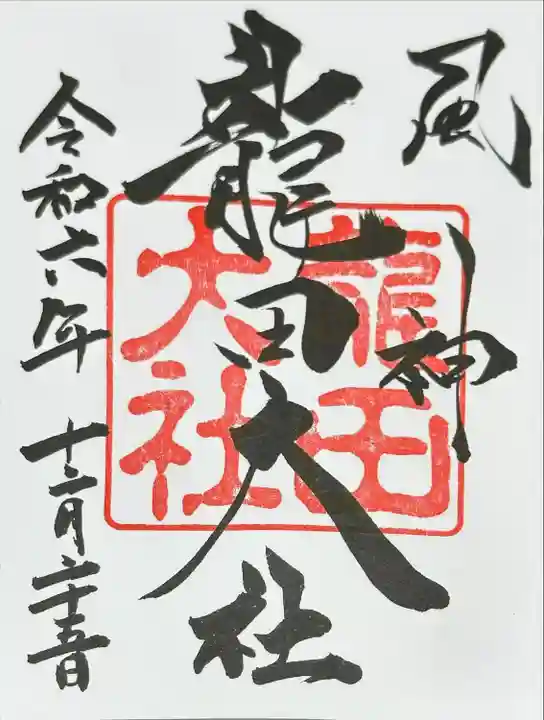 風神
龍田大社
龍田
大社
令和六年 十二月二十五日